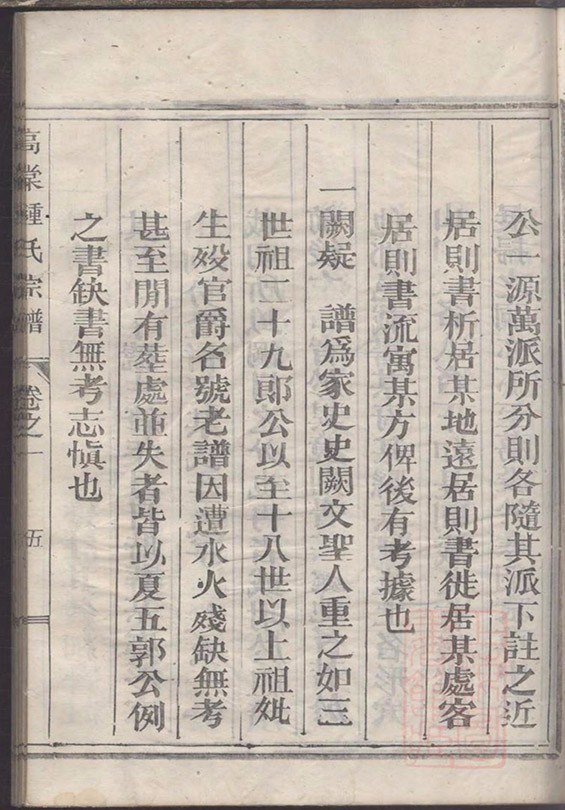 公一源萬派所分則各隨其派下註之近
居則書析居某地遠居則書徙居某處客
居則書流寓某方俾後有考據也
一闕疑 譜爲家史史闕文聖人重之如三
世祖二十九郞公以至十八世以上祖妣
生歿官爵名號老譜因遭水火殘缺無考
甚至閒有塟處並失者皆以夏五郭公例
之書缺書無考志愼也
高棠鍾氏宗譜 卷之一 五